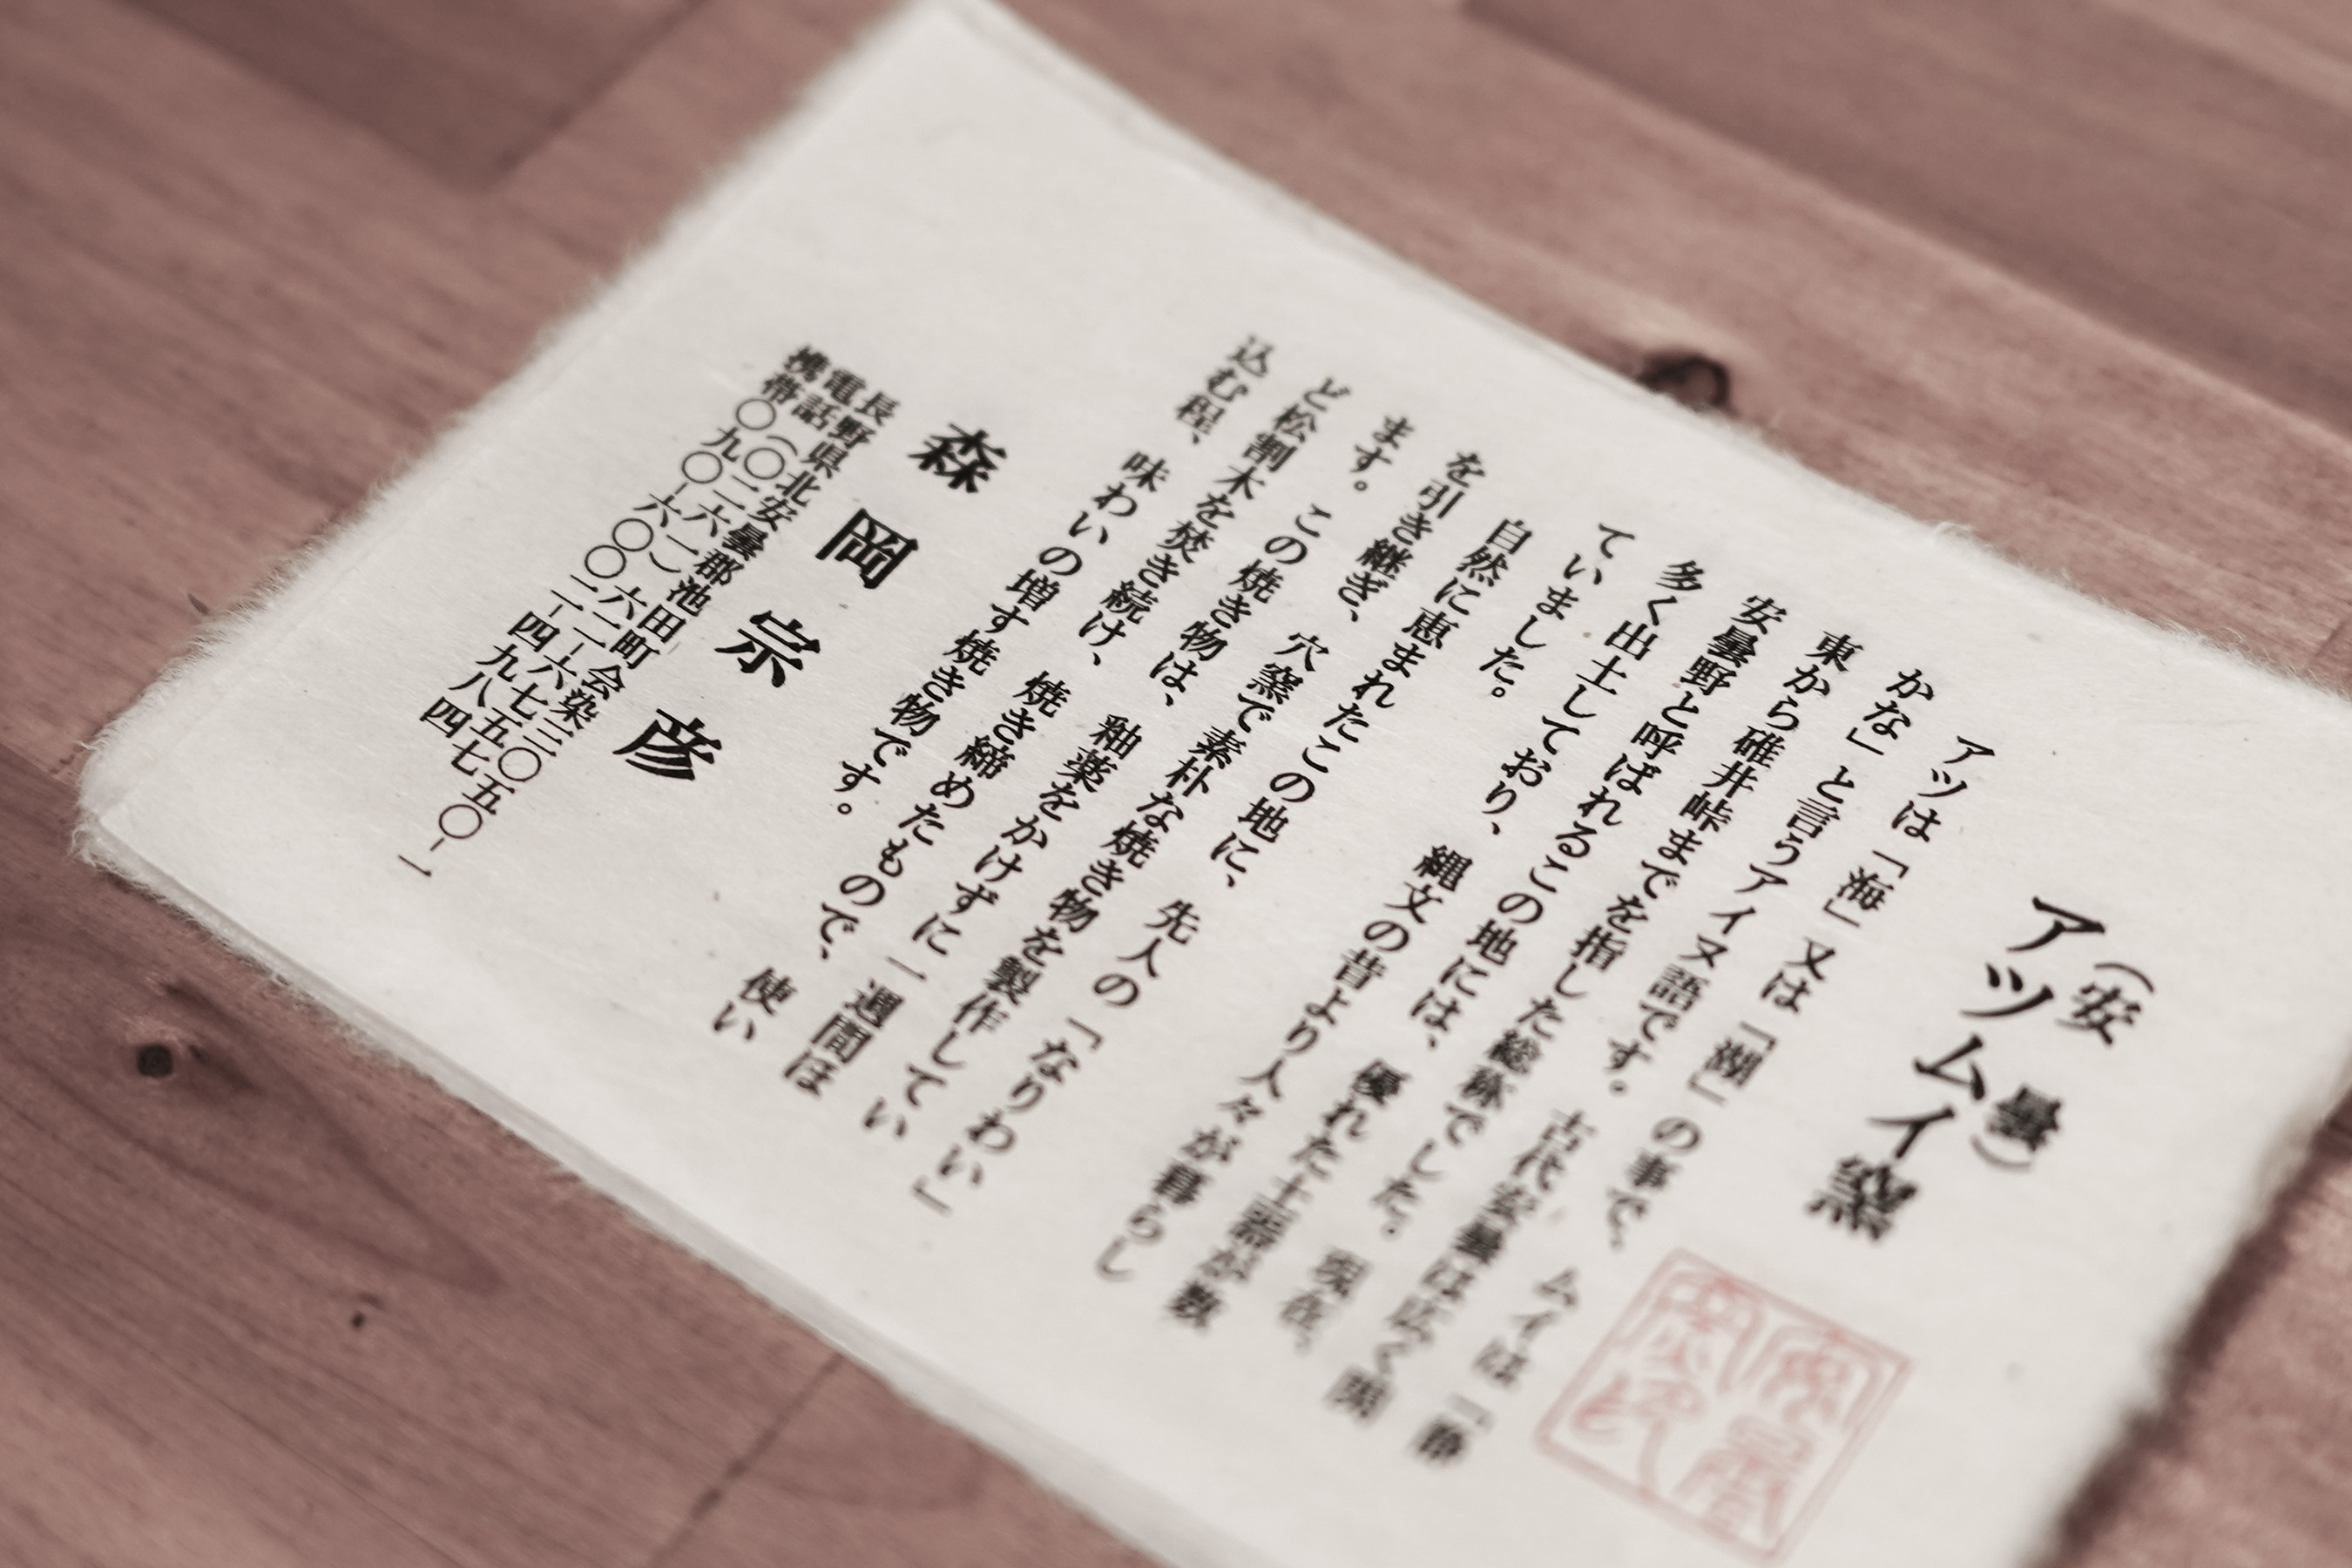 （安曇）
アツムイ窯
アツは「海」又は「湖」の事で、ムイは「静
かな」と言うアイヌ語です。古代安曇は広く関
東から碓井峠までを指した総称でした。現在、
安曇野と呼ばれるこの地には、優れた土器が数
多く出土しており、縄文の昔より人々が暮らし
ていました。
自然に恵まれたこの地に、先人の「なりわい」
を引き継ぎ、穴窯で素朴な焼き物を製作してい
ます。この焼き物は、釉薬をかけずに一週間ほ
ど松割木を焚き続け、焼き締めたもので、使い
込む程、味わいの増す焼き物です。
森岡宗彦
長野県北安曇郡池田町会染三〇五〇-一
電話（〇二六一）六二-六七五七
携帯〇九〇-六〇〇二-四九八四